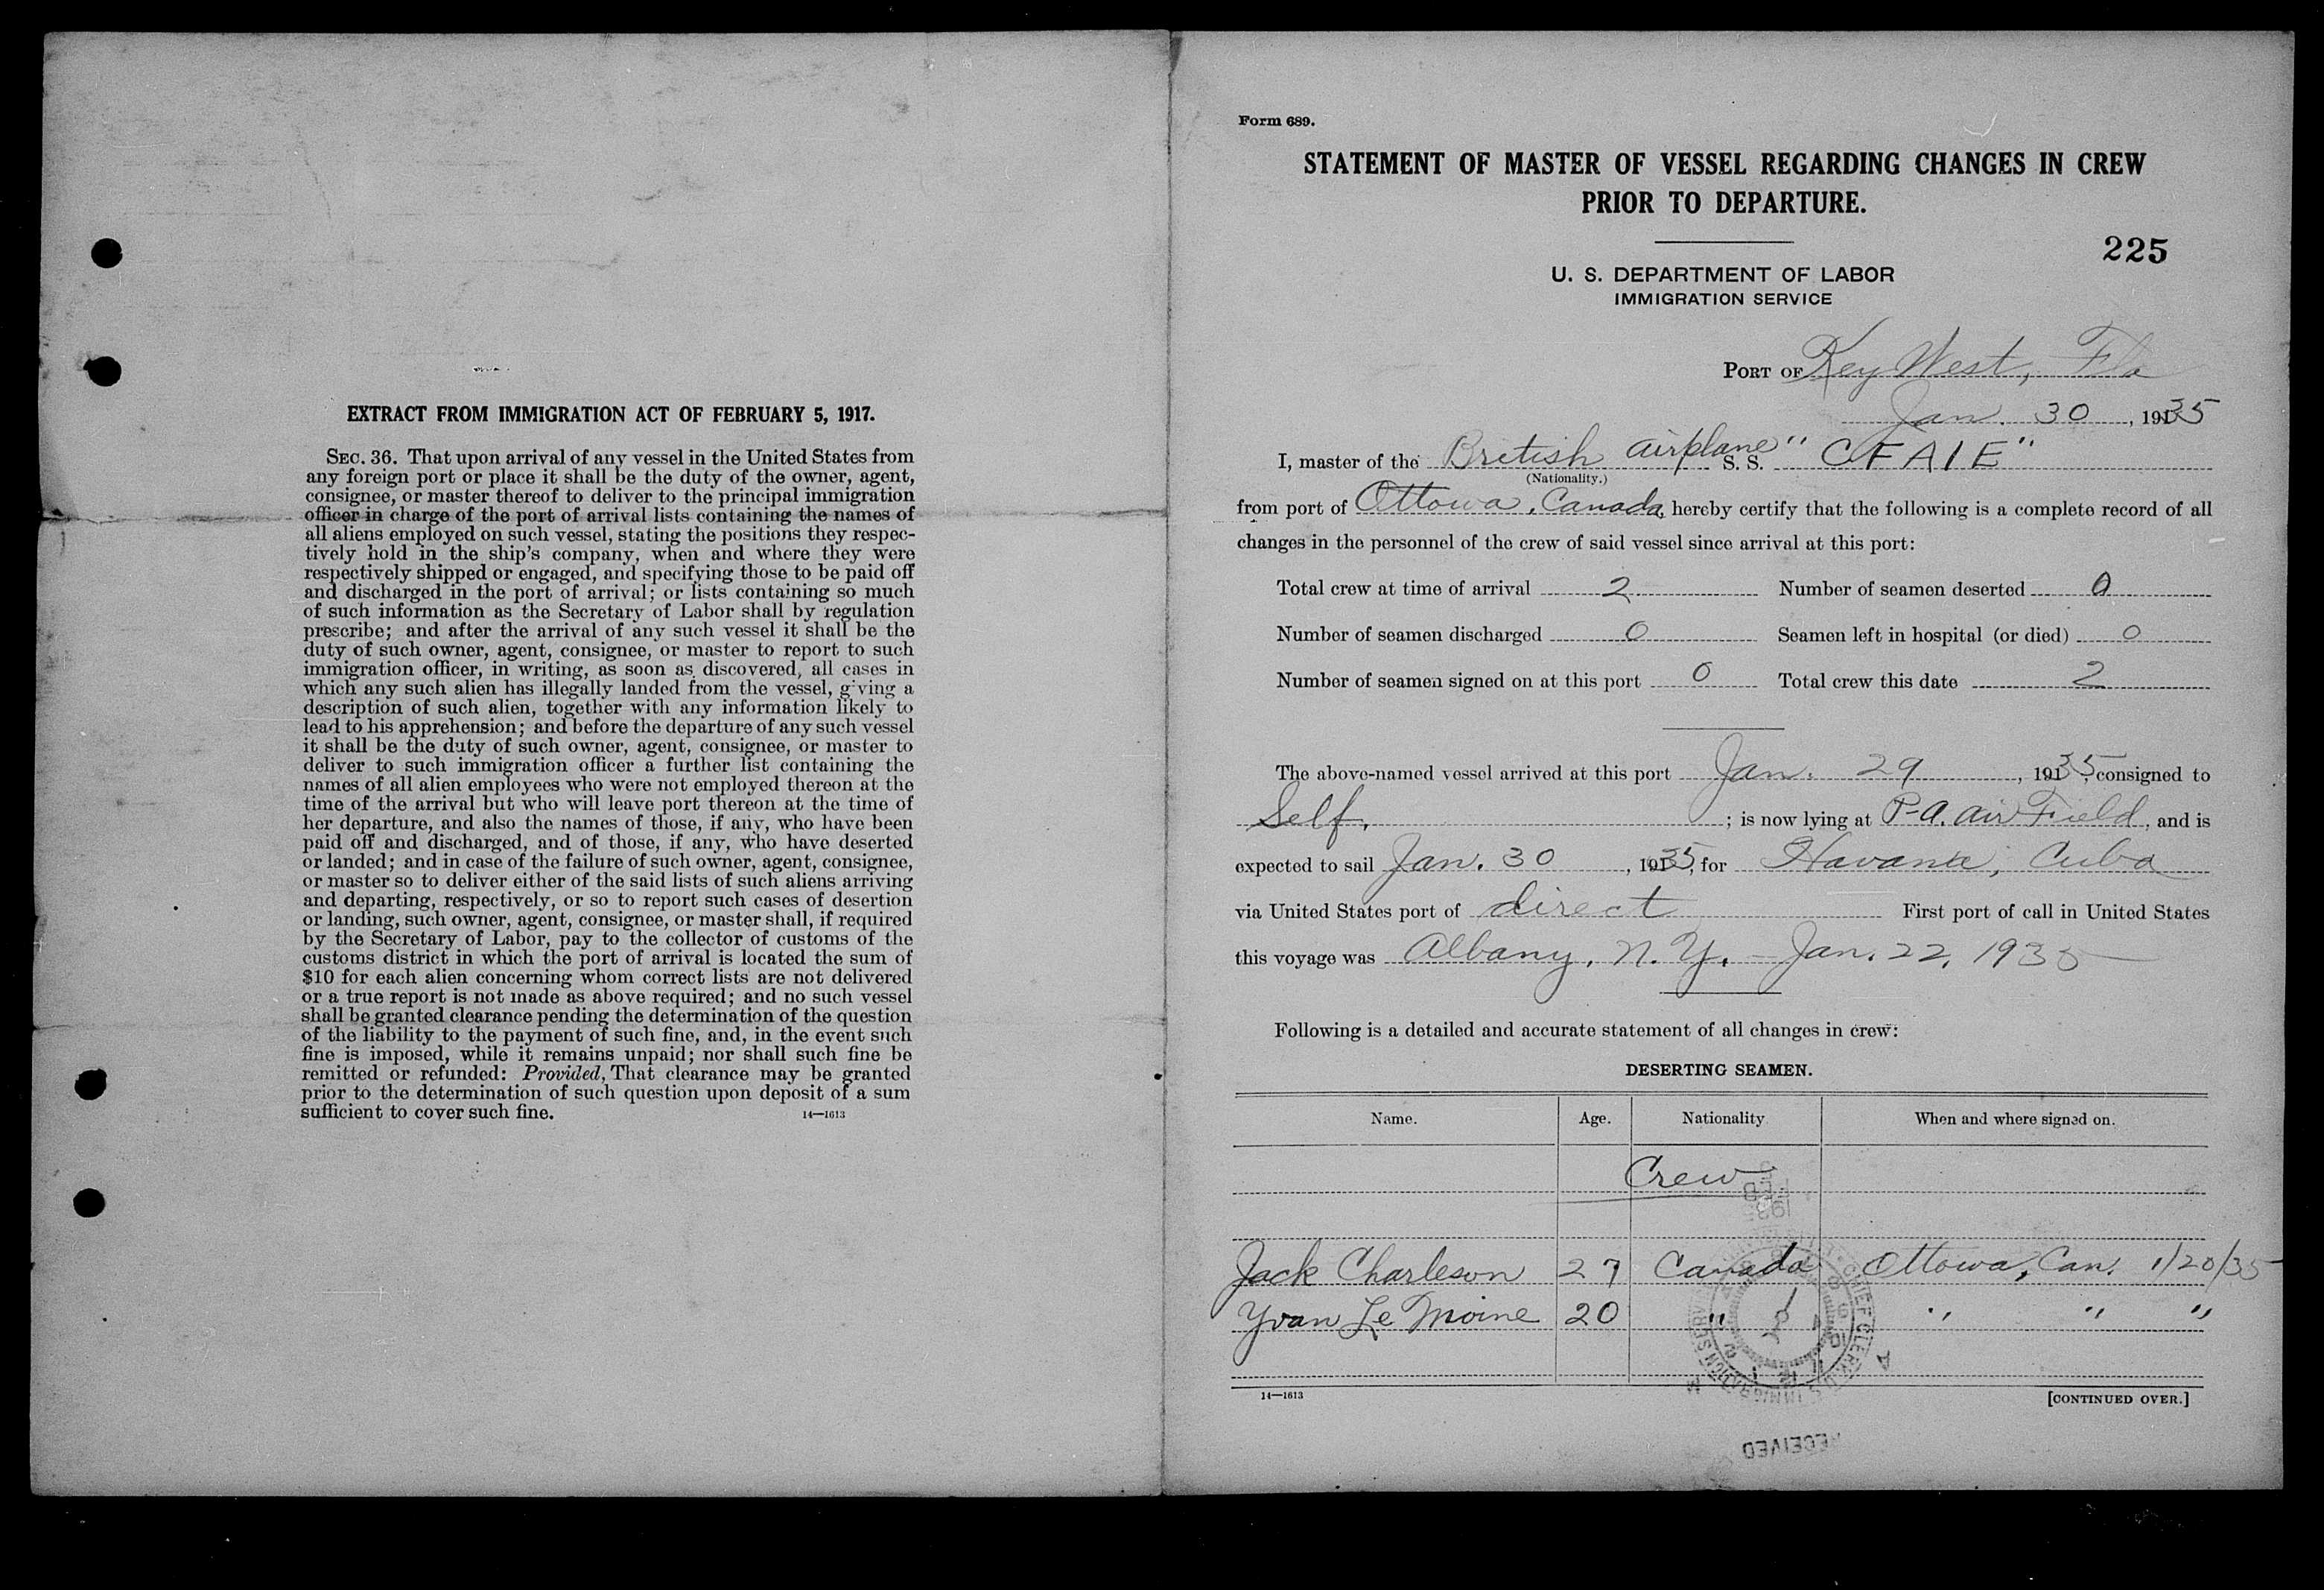 EXTRACT FROM IMMIGRATION ACT OF FEBRUARY 5, 1917.
SEC. 36. That upon arrival of any vessel in the United States from
any foreign port or place it shall be the duty of the owner, agent,
consignee, or master thereof to deliver to the principal immigration
officer in charge of the port of arrival lists containing the names of
all aliens employed on such vessel, stating the positions they respec-
tively hold in the ship's company, when and where they were
respectively shipped or engaged, and specifying those to be paid off
and discharged in the port of arrival; or lists containing so much
of such information as the Secretary of Labor shall by regulation
prescribe; and after the arrival of any such vessel it shall be the
duty of such owner, agent, consignee, or master to report to such
immigration officer, in writing, as soon as discovered, all cases in
which any such alien has illegally landed from the vessel, giving a
description of such alien, together with any information likely to
lead to his apprehension; and before the departure of any such vessel
it shall be the duty of such owner, agent, consignee, or master to
deliver to such immigration officer a further list containing the
names of all alien employees who were not employed thereon at the
time of the arrival but who will leave port thereon at the time of
her departure, and also the names of those, if any, who have been
paid off and discharged, and of those, if any, who have deserted
or landed; and in case of the failure of such owner, agent, consignee,
or master so to deliver either of the said lists of such aliens arriving
and departing, respectively, or so to report such cases of desertion
or landing, such owner, agent, consignee, or master shall, if required
by the Secretary of Labor, pay to the collector of customs of the
customs district in which the port of arrival is located the sum of
$10 for each alien concerning whom correct lists are not delivered
or a true report is not made as above required; and no such vessel
shall be granted clearance pending the determination of the question
of the liability to the payment of such fine, and, in the event such
fine is imposed, while it remains unpaid; nor shall such fine be
remitted or refunded: Provided, That clearance may be granted
prior to the determination of such question upon deposit of a sum
sufficient to cover such fine. 14—1613
Form 689.
STATEMENT OF MASTER OF VESSEL REGARDING CHANGES IN CREW
PRIOR TO DEPARTURE.
225
U. S. DEPARTMENT OF LABOR
IMMIGRATION SERVICE
PORT OF Key West, Fla
Jan. 30, 1935
I, master of the British airplane S. S. "CFAIE"
(Nationality.)
from port of Ottowa, Canada, hereby certify that the following is a complete record of all
changes in the personnel of the crew of said vessel since arrival at this port:
Total crew at time of arrival 2 Number of seamen deserted 0
Number of seamen discharged 0 Seamen left in hospital (or died) 0
Number of seamen signed on at this port 0 Total crew this date 2
The above-named vessel arrived at this port Jan. 29, 1935, consigned to
Self. ; is now lying at P-A. Air Field, and is
expected to sail Jan. 30, 1935, for Havana, Cuba
via United States port of direct First port of call in United States
this voyage was Albany, N. Y. - Jan. 22, 1935
Following is a detailed and accurate statement of all changes in crew:
DESERTING SEAMEN.
Name. Age. Nationality When and where signed on.
Crew
Jack Charleson 27 Canada Ottowa, Can. 1/20/35
Yvan Le Moine 20 " " " "
14—1613 [CONTINUED OVER.]
RECEIVED